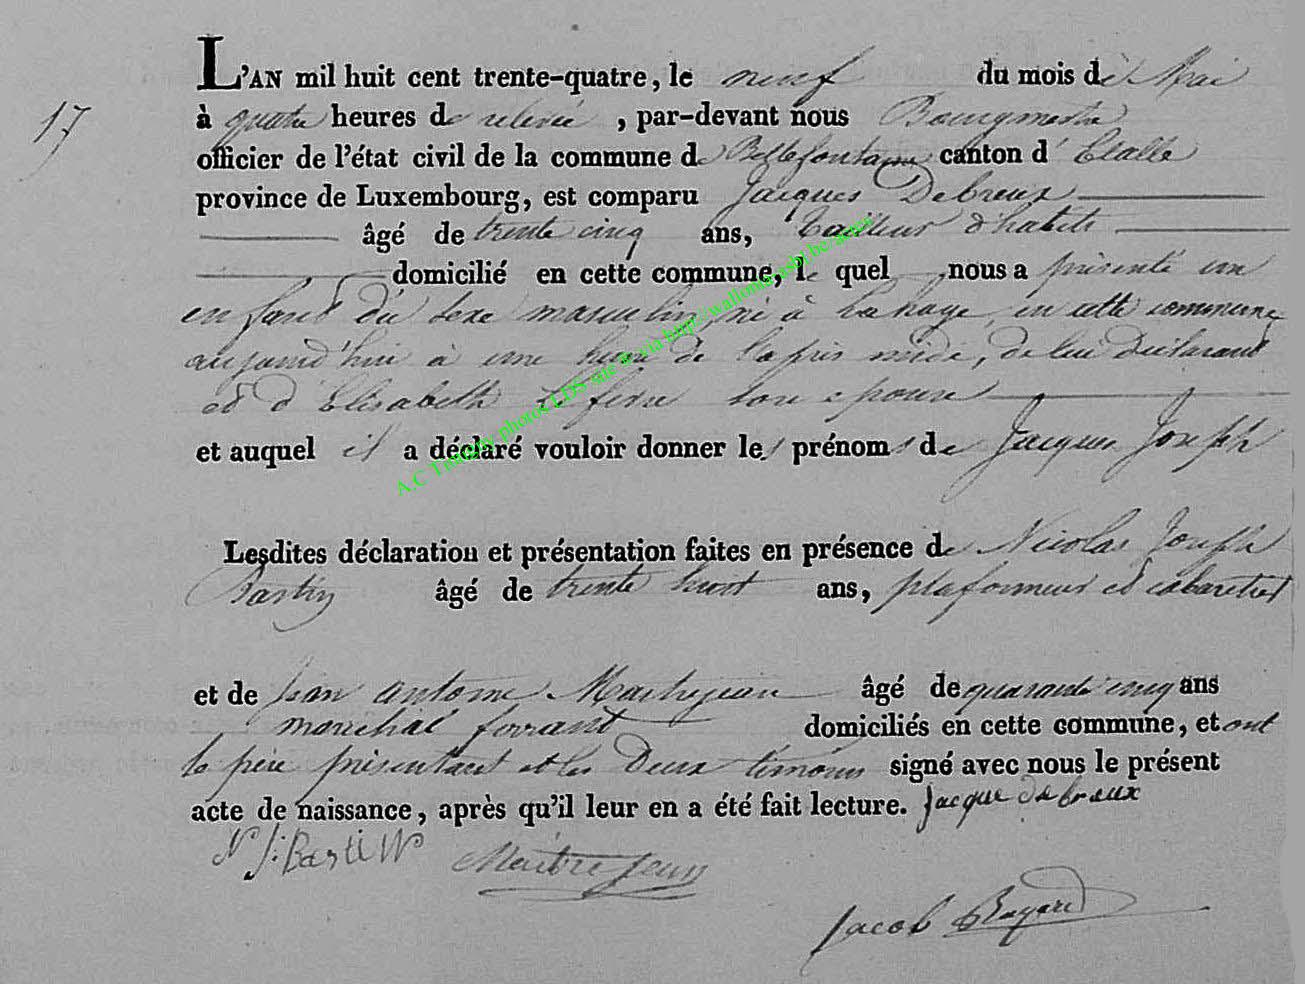 L'AN mil huit cent trente-quatre, le neuf du mois de Mai
17
à quatre heures de relevée, par-devant nous Bourgmestre
officier de l'état civil de la commune de Bellefontaine canton d'Etalle
province de Luxembourg, est comparu Jacques Debreux
âgé de trente cinq ans, tailleur d'habits
domicilié en cette commune, le quel nous a présenté un
enfant du sexe masculin né à Lahage, en cette commune
aujourd'hui à une heure de l'après midi, de lui déclarant
et d'Elisabeth son épouse
et auquel il a déclaré vouloir donner les prénoms de Jacques Joseph
Lesdites déclaration et présentation faites en présence de Nicolas Joseph
Bastin âgé de trente huit ans, plafonneur et cabaretier
et de Jean antoine Maitrejean âgé de quarante cinq ans
maréchal ferrant domiciliés en cette commune, et ont
le père présentant et les deux témoins signé avec nous le présent
acte de naissance, après qu'il leur en a été fait lecture. Jacque debreux
N J: BastiN Maitrejean
Jacob Bayard
A.C Tintigny photos LDS site & via http://wallonia.asbl.be/actes